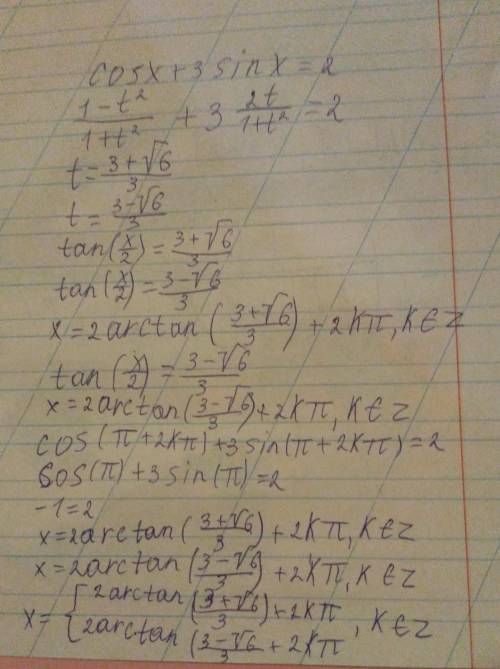 cosx+3sinx=2
(1-t²)/(1+t²) + 3 2t/(1+t²) =2
t=(3+√6)/3
t=(3-√6)/3
tan(x/2)=(3+√6)/3
tan(x/2)=(3-√6)/3
x=2arctan((3+√6)/3)+2kπ, k∈Z
tan(x/2)=(3-√6)/3
x=2arctan((3-√6)/3)+2kπ, k∈Z
cos(π+2kπ)+3sin(π+2kπ)=2
cos(π)+3sin(π)=2
-1=2
x=2arctan((3+√6)/3)+2kπ, k∈Z
x=2arctan((3-√6)/3)+2kπ, k∈Z
x={2arctan((3+√6)/3)+2kπ
2arctan((3-√6)/3+2kπ , k∈Z